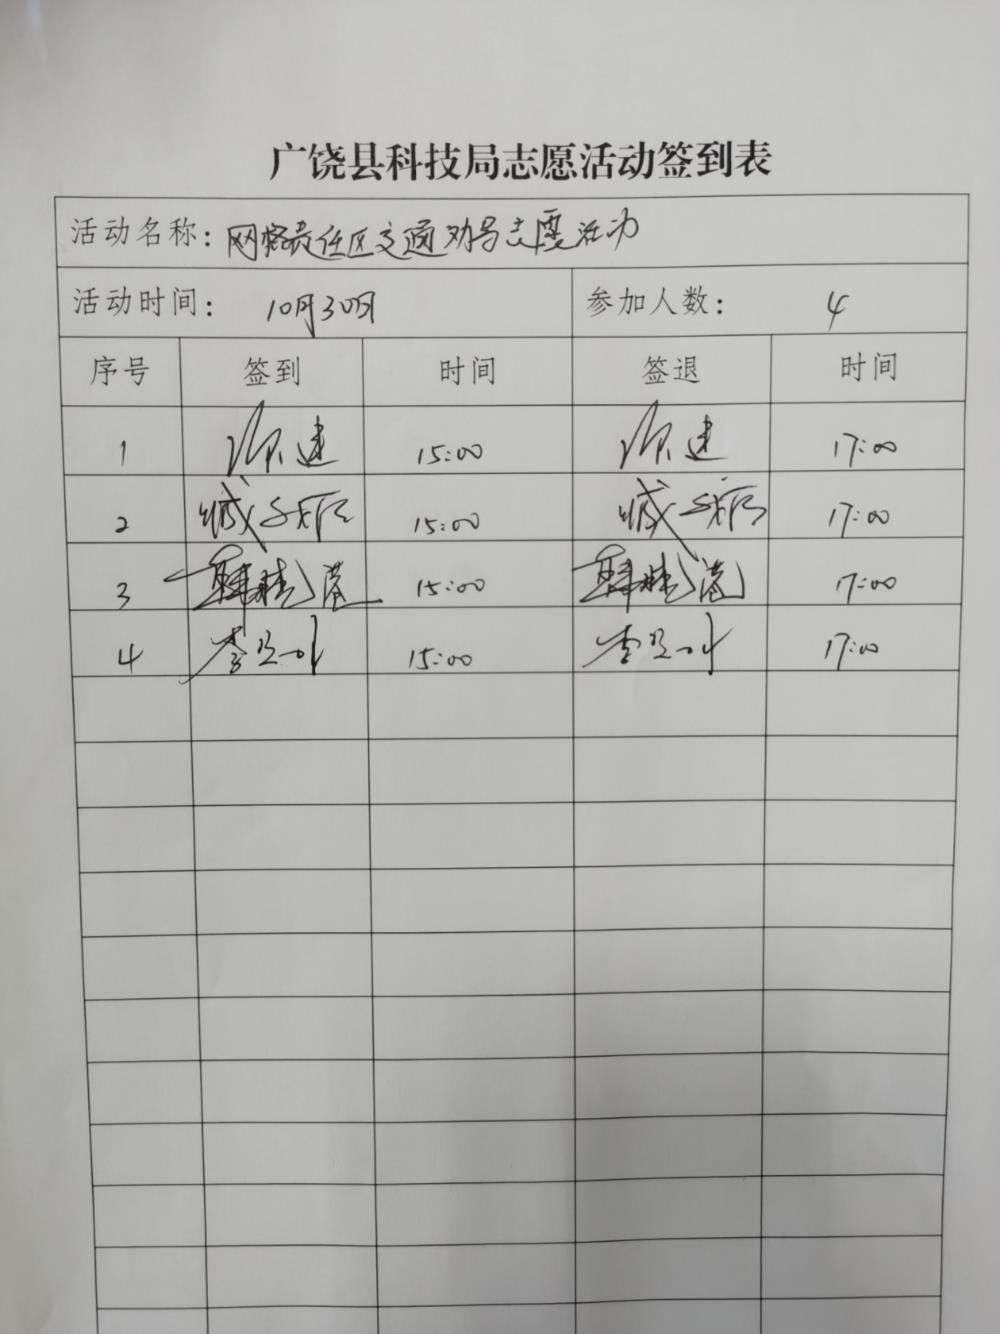 广饶县科技局志愿活动签到表
活动名称：网格责任区交通劝导志愿活动
活动时间：10月30日 参加人数：4
序号 签到 时间 签退 时间
1 15:00 17:00
2 15:00 17:00
3 15:00 17:00
4 15:00 17:00